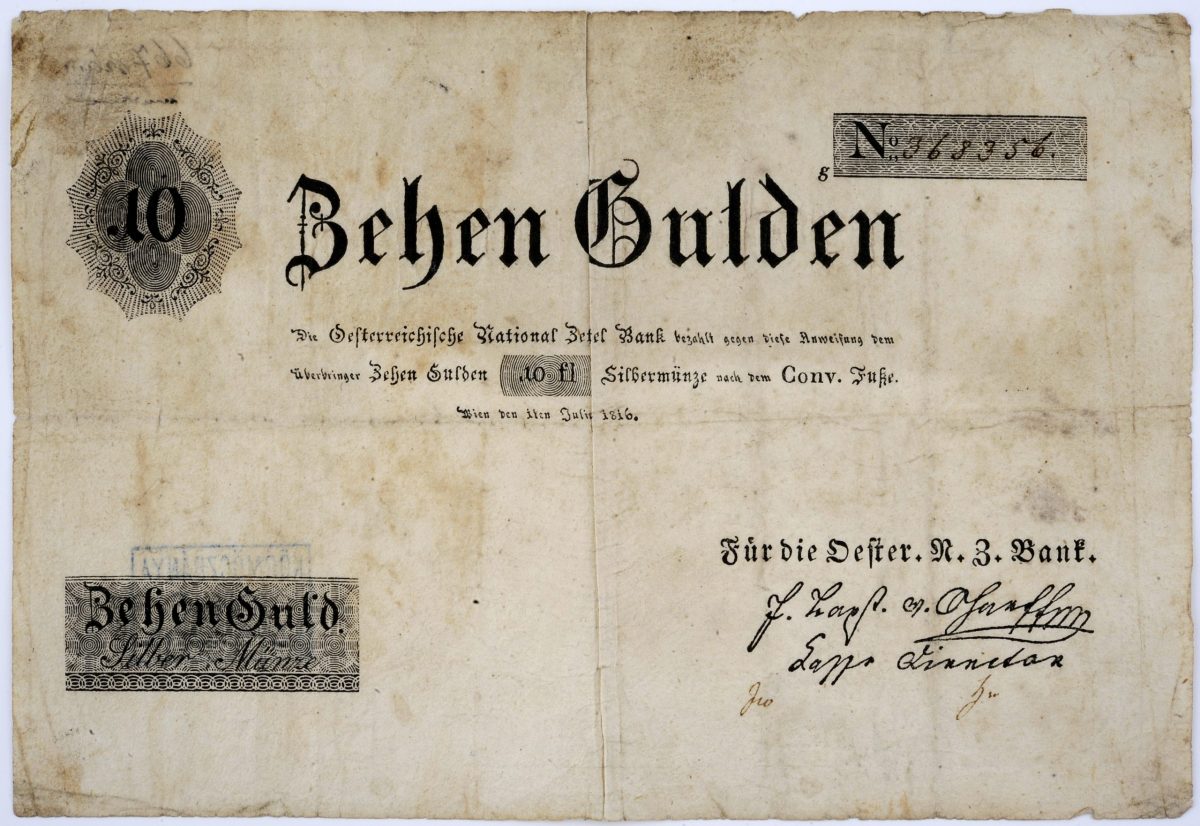 10
No 368356.
g
Zehen Gulden
Die Oesterreichische National Zetel Bank bezahlt gegen diese Anweisung dem
Überbringer Zehen Gulden 10 fl Silbermünze nach dem Conv. Fuße.
Wien den 1ten Julii 1816.
Für die Oester. N. Z. Bank.
v. Scharff
Cassa Director
Zehen Guld.
Silber Münze